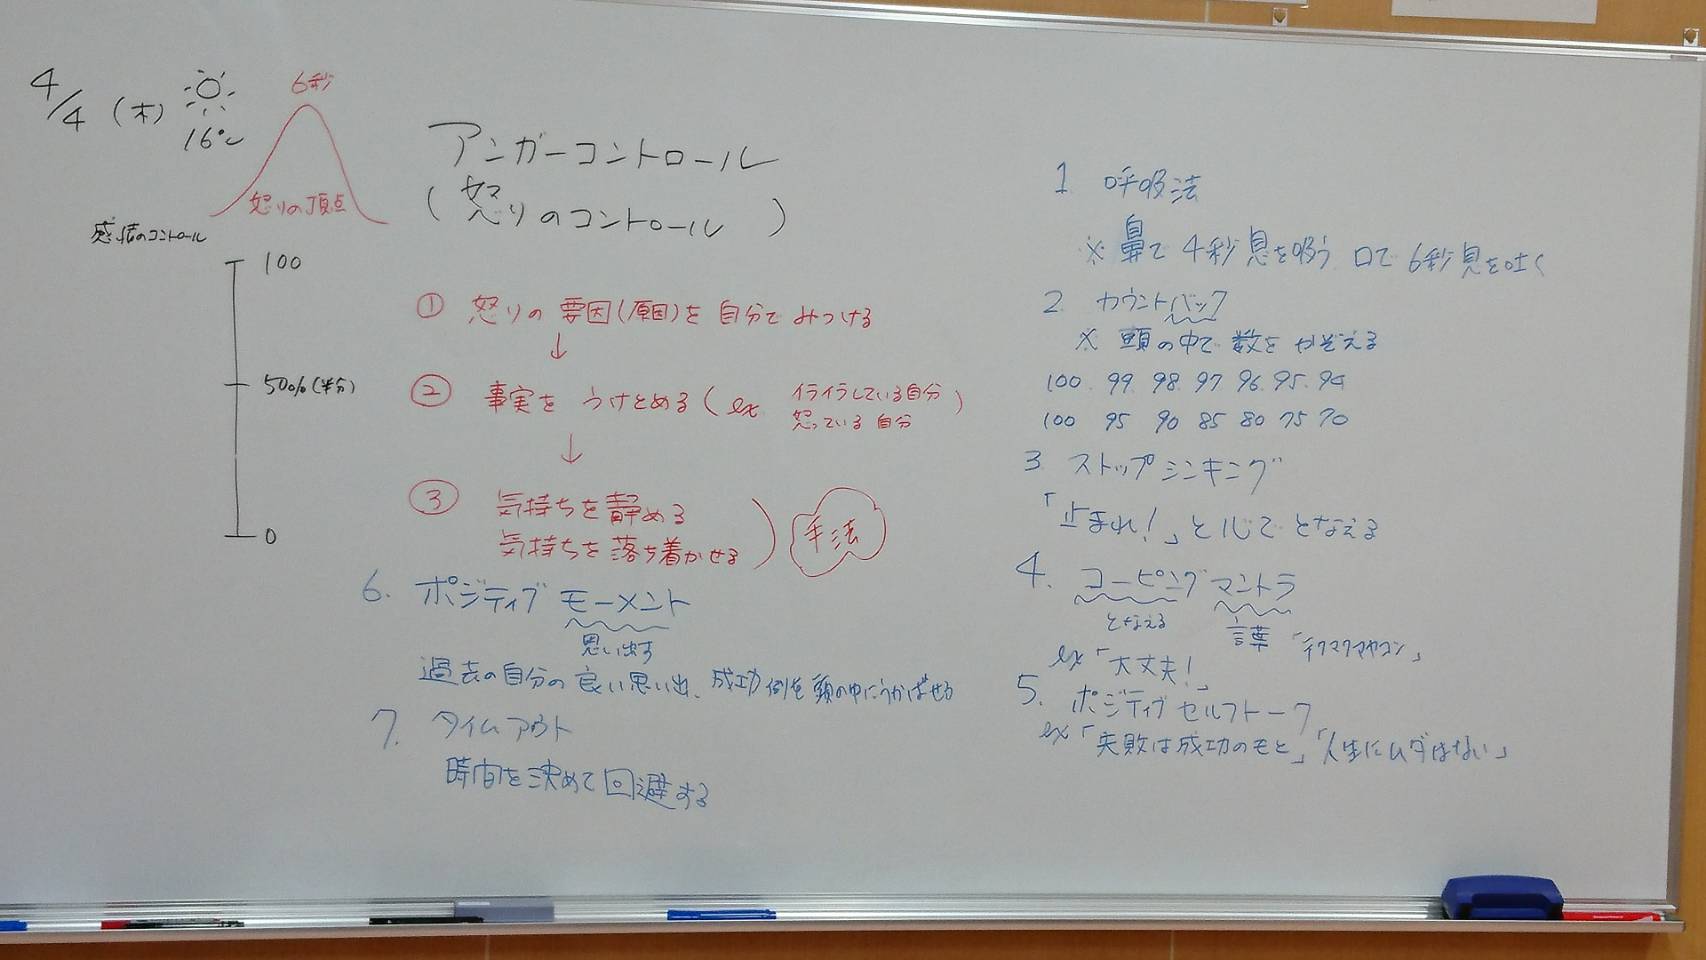 4/4 (木)
16℃
6秒
怒りの頂点
感情のコントロール
100
50%(半分)
0
アンガーコントロール
(怒りのコントロール)
① 怒りの要因(原因)を自分でみつける
↓
② 事実をうけとめる(ex イライラしている自分
怒っている自分)
↓
③ 気持ちを静める
気持ちを落ち着かせる)
手法
1 呼吸法
※ 鼻で4秒息を吸う 口で6秒息を吐く
2 カウントバック
※ 頭の中で数をかぞえる
100. 99. 98. 97. 96. 95. 94
100 95 90 85 80 75 70
3 ストップシンキング
「止まれ!」と心でとなえる
4. コーピングマントラ
となえる 言葉 「テクマクマヤコン」
ex「大丈夫!」
5. ポジティブセルフトーク
ex「失敗は成功のモと」「人生にムダはない」
6. ポジティブモーメント
思い出す
過去の自分の良い思い出、成功例を頭の中にうかばせる
7. タイムアウト
時間を決めて回避する